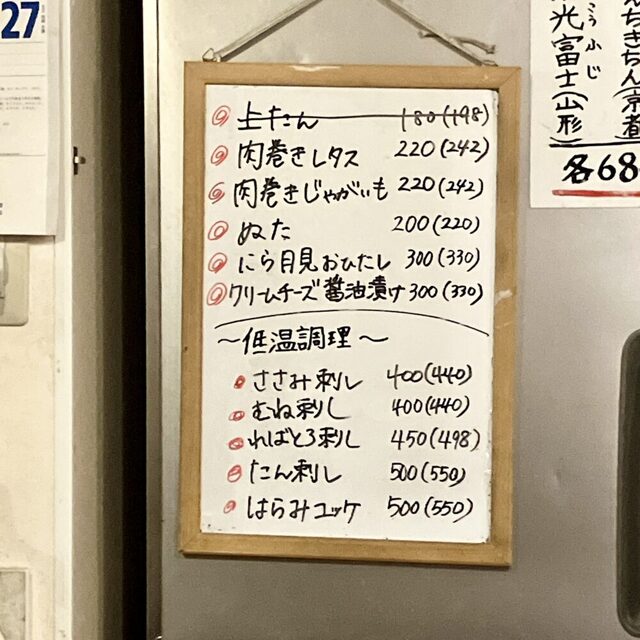 27
上たん 180(198)
肉巻きレタス 220(242)
肉巻きじゃがいも 220(242)
ぬた 200(220)
にら月見おひたし 300(330)
クリームチーズ醤油漬け 300(330)
〜低温調理〜
ささみ刺し 400(440)
むね刺し 400(440)
ればとろ刺し 450(498)
たん刺し 500(550)
はらみユッケ 500(550)
ちきちん(京都
こうふじ
光富士(山形)
各68